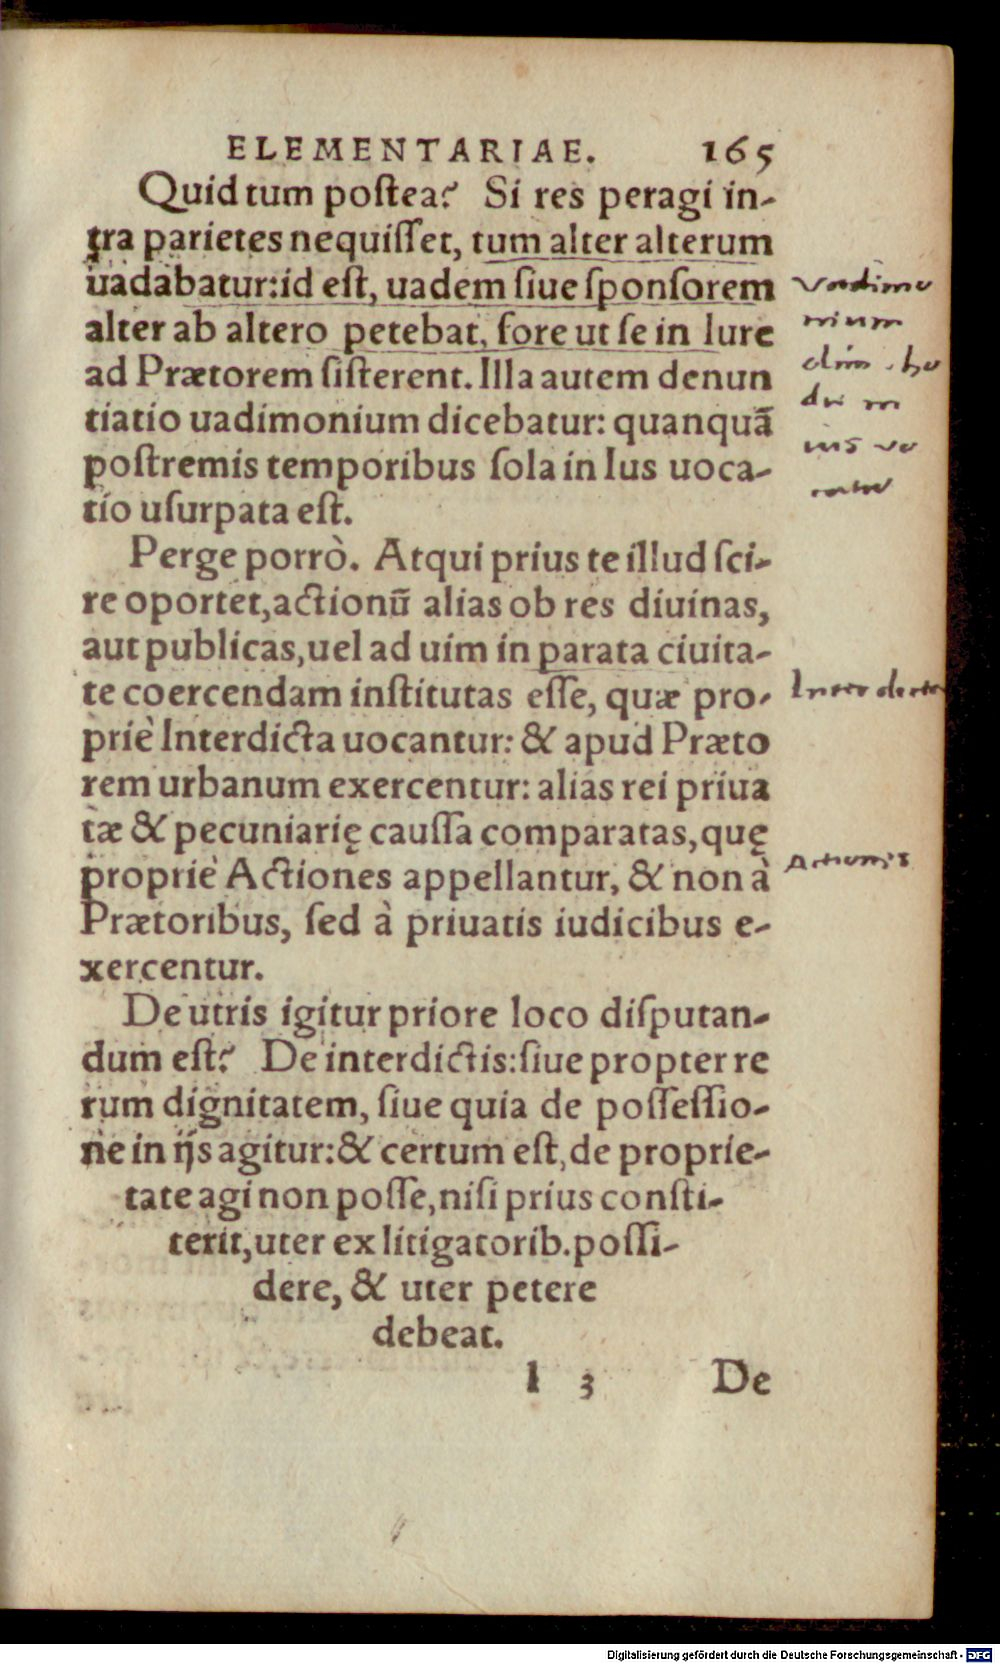 ELEMENTARIAE. 165
Quid tum postea? Si res peragi in-
tra parietes nequisset, tum alter alterum
uadabatur: id est, uadem siue sponsorem
alter ab altero petebat, fore ut se in Iure
ad Prætorem sisterent. Illa autem denun
tiatio uadimonium dicebatur: quanquã
postremis temporibus sola in Ius uoca-
tio usurpata est.
Perge porrò. Atqui prius te illud sci-
re oportet, actionũ alias ob res diuinas,
aut publicas, uel ad uim in parata ciuita-
te coercendam institutas esse, quæ pro-
priè Interdicta uocantur: & apud Præto
rem urbanum exercentur: alias rei priua
tæ & pecuniarię caussa comparatas, quę
propriè Actiones appellantur, & non à
Prætoribus, sed à priuatis iudicibus e-
xercentur.
De utris igitur priore loco disputan-
dum est? De interdictis: siue propter re
rum dignitatem, siue quia de possessio-
ne in ijs agitur: & certum est, de proprie-
tate agi non posse, nisi prius consti-
terit, uter ex litigatorib. possi-
dere, & uter petere
debeat.
l 3 De
Vadimo
nium
olim . ho
die in
ius vo
catio
Interdicta
Actiones
Digitalisierung gefördert durch die Deutsche Forschungsgemeinschaft - DFG